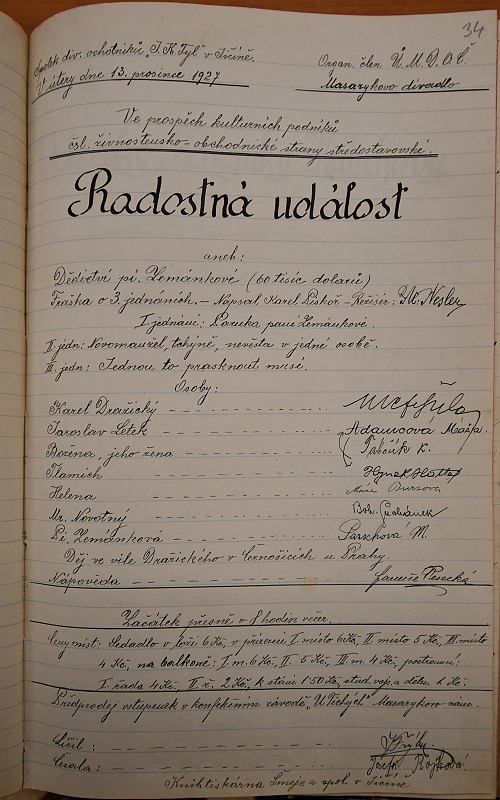 34
Spolek div. ochotníků „J. K. Tyl" v Jičíně.
V úterý dne 13. prosince 1927
Organ. člen Ú. M. D. O. Č.
Masarykovo divadlo
Ve prospěch kulturních podniků
čsl. živnostensko-obchodnické strany středostavovské.
Radostná událost
aneb:
Dědictví pí. Zemánkové (60 tisíc dolarů)
Fraška o 3. jednáních, – Napsal Karel Piskoř – Režisér: Nesler
I. jednání: Paruka paní Zemánkové.
II. jedn: Novomanžel, tchýně, nevěsta v jedné osobě.
III. jedn: Jednou to prasknout musí.
Osoby:
Karel Dražický
Jaroslav Letek Adamcová
Božena, jeho žena K.
Tlamich Hynek
Helena Bursová
Mr. Novotný Boh.
Pí. Zemánková Parschová M.
Děj ve vile Dražického v Černošicích u Prahy.
Nápověda
Začátek přesně v 8 hodin večer.
Ceny míst: Sedadlo v loži 6 Kč, v přízemí I. místo 6 Kč, II. místo 5 Kč, III. místo
4 Kč, na balkoně: I. m. 6 Kč, II. 5 Kč, III. m. 4 Kč, postranní:
I. řada 4 Kč, II. ř. 2 Kč, k stání 1·50 Kč, stud. voj. a děln. 1 Kč.
Předprodej vstupenek v konfekčním závodě „U Tichých" Masarykovo nám.
Líčil:
Česala: Rojková.
Knihtiskárna Smejc a spol. v Jičíně.